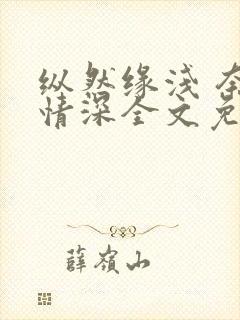 纵然缘浅 奈
情深全文免
薛岭山